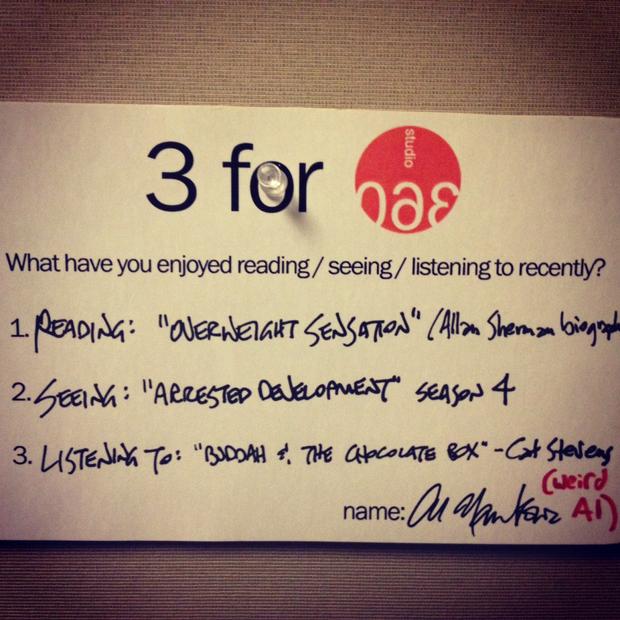 3 for
studio
360
What have you enjoyed reading / seeing / listening to recently?
1. READING: "OVERWEIGHT SENSATION" (Allan Sherman biograph
2. SEEING: "ARRESTED DEVELOPMENT" SEASON 4
3. LISTENING TO: "BUDDAH & THE CHOCOLATE BOX" - Cat Stevens
(weird
name: Al Yankovic AI)